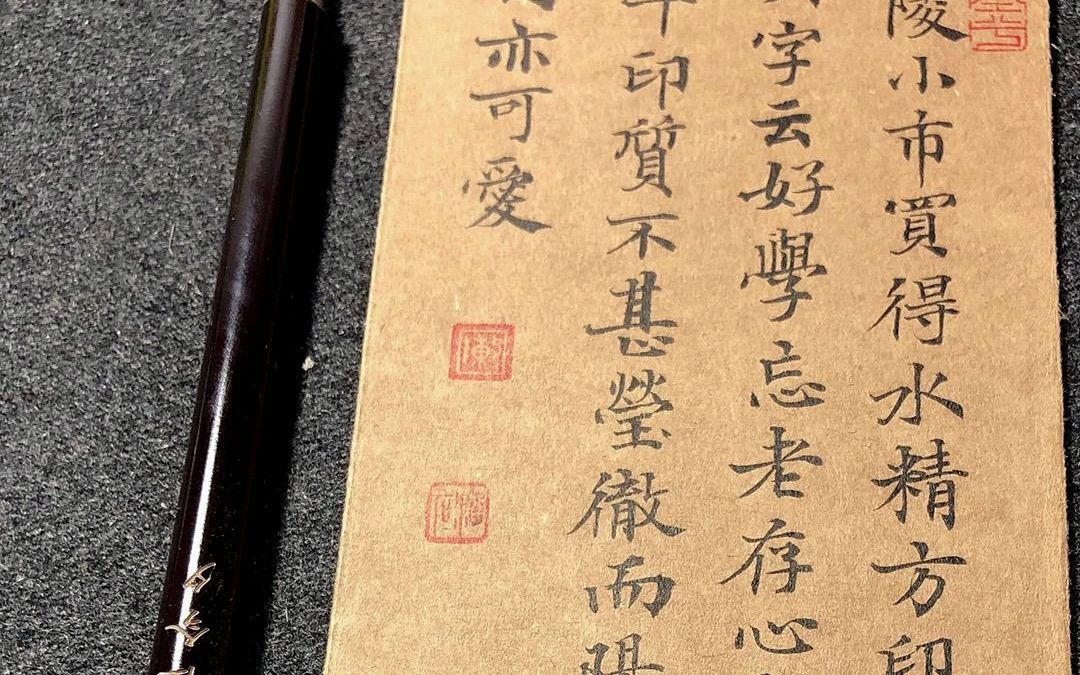 陵小市買得水精方印
字云好學忘老存心
印質不甚瑩徹而陽
亦可愛